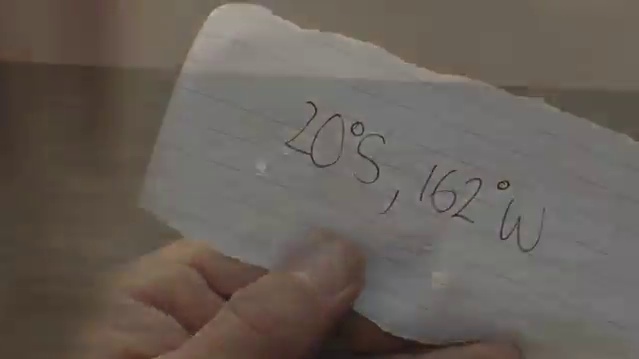 20°S, 162°W